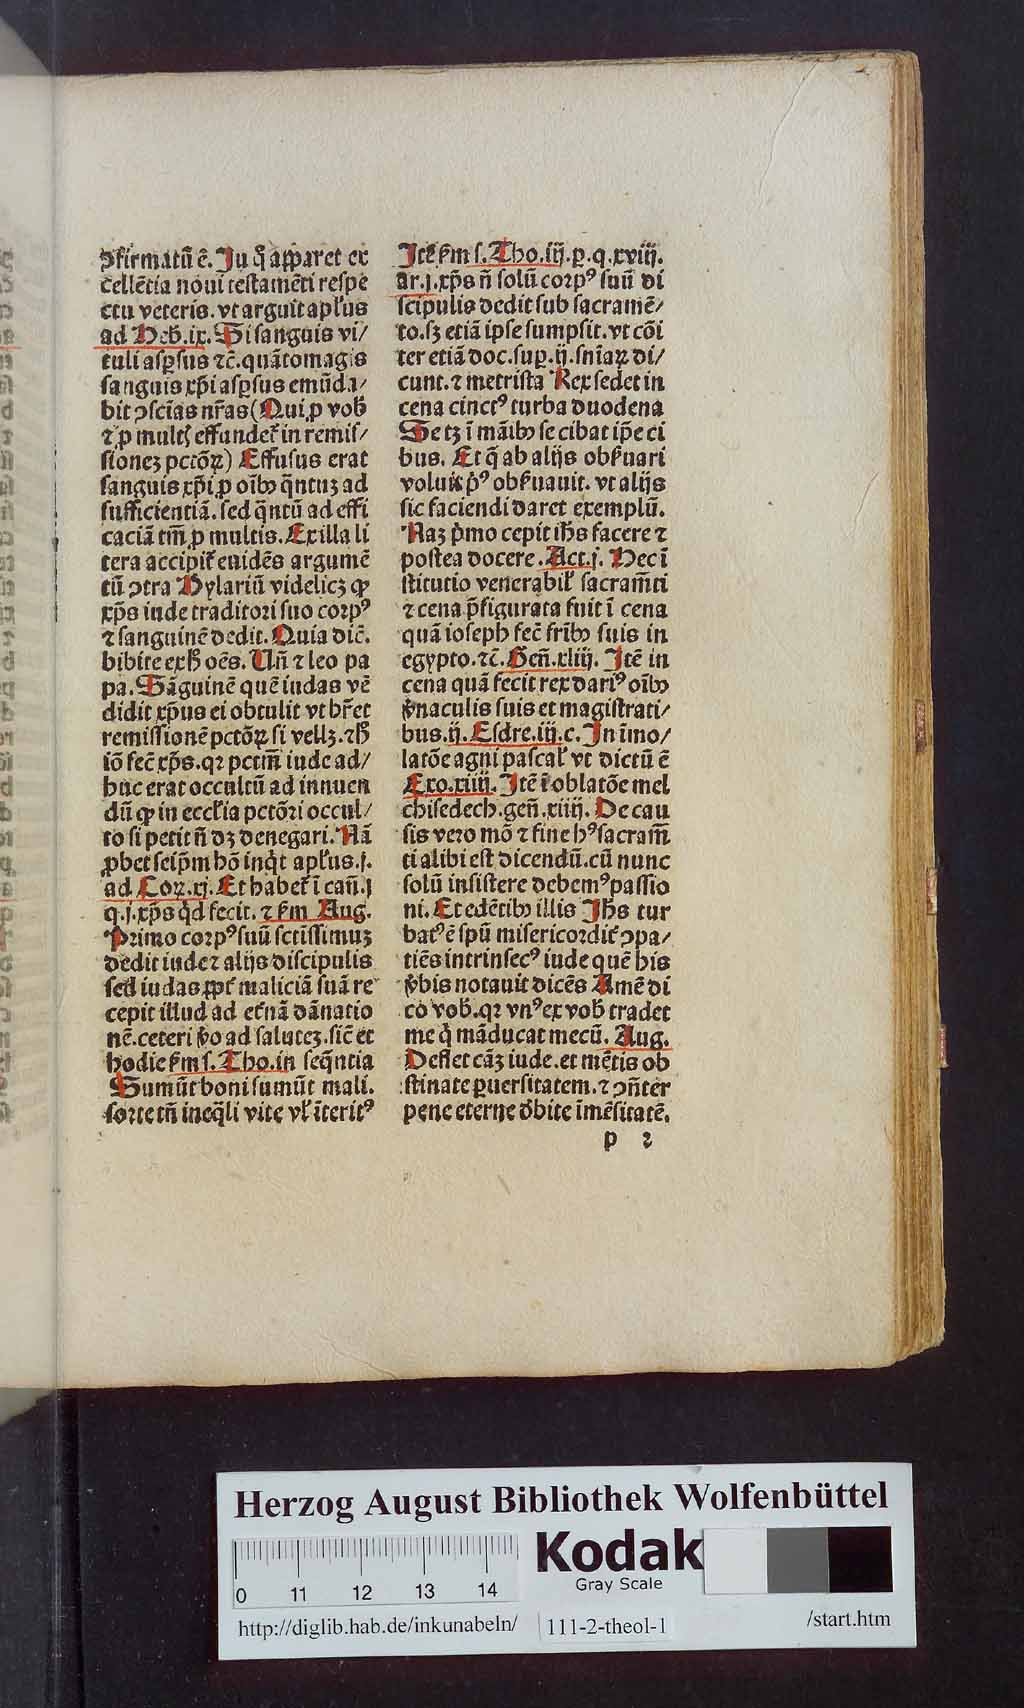 ꝯfirmatũ ē. Ju q̃ apparet ex
cellẽtia noui testamẽti respe
ctu veteris. vt arguit apl'us
ad Heb. ix. Si sanguis vi/
tuli aspsus ⁊c̃. quãtomagis
sanguis xp̃i aspsus emũda/
bit ꝯscĩas nr̃as (Qui ꝓ vob̃
⁊ ꝓ mult' effundet' in remis/
sioneꝫ pctõꝝ) Effusus erat
sanguis xp̃i ꝓ oĩbꝰ q̃ntuꝫ ad
sufficientiã. sed q̃ntũ ad effi
caciã tm̃ ꝓ multis. Ex illa li
tera accipit' euidẽs argumẽ
tũ ꝯtra Hylariũ videlicꝫ ꝙ
xp̃s iude traditori suo corpꝰ
⁊ sanguinẽ dedit. Quia dic̃.
bibite ex h̃ oẽs. Uñ ⁊ leo pa
pa. Sãguinẽ quẽ iudas vẽ
didit xp̃us ei obtulit vt br̃et
remissionẽ pctõꝝ si vellꝫ. ⁊ h̃
iõ fec̃ xp̃s. qꝛ pctm̃ iude ad/
huc erat occultũ ad innuen
dũ ꝙ in eccl'ia pctõri occul/
to si petit ñ dꝫ denegari. Nã
ꝓbet seip̃m hõ inq̇t apl'us. j.
ad Coꝝ. xj. Et habet' ĩ cañ. j
q. j. xp̃s q̇d fecit. ⁊ ẜm Aug.
Primo corpꝰ suũ sctissimuꝫ
dedit iude ⁊ alijs discipulis
sed iudas ꝓpt' maliciã suã re
cepit illud ad et'nã dãnatio
nẽ. ceteri ꝟo ad saluteꝫ. sic̃ et
hodie ẜm s. Tho. in seq̃ntia
Sumũt boni sumũt mali.
sorte tñ ineq̃li vite vl' ĩteritꝰ
Jtẽ ẜm s. Tho. iij. p. q. xviij.
ar. j. xp̃s ñ solũ corpꝰ suũ di
scipulis dedit sub sacramẽ/
to. sꝫ etiã ipse sumpsit. vt cõi
ter etiã doc. sup. ij. snĩaꝝ di/
cunt. ⁊ metrista Rex sedet in
cena cinctꝰ turba duodena
Se tꝫ ĩ mãibꝰ se cibat ip̃e ci
bus. Et q̃ ab alijs obẜuari
voluit p̃ꝰ obẜuauit. vt alijs
sic faciendi daret exemplũ.
Naꝫ p̃mo cepit ih̃s facere ⁊
postea docere. Act. j. Hec ĩ
stitutio venerabil' sacram̃ti
⁊ cena p̃figurata fuit ĩ cena
quã ioseph fec̃ fr̃ibꝰ suis in
egypto. ⁊c̃. Geñ. xliij. Jtẽ in
cena quã fecit rex dariꝰ oĩbꝰ
ꝟnaculis suis et magistrati/
bus. ij. Esdre. iij. c. Jn imo/
latõe agni pascal' vt dictũ ē
Exo. xiiij. Jtẽ ĩ oblatõe mel
chisedech. geñ. xiiij. De cau
sis vero mõ ⁊ fine hꝰ sacram̃
ti alibi est dicendũ. cũ nunc
solũ insistere debemꝰ passio
ni. Et edẽtibꝰ illis Jh̃s tur
batꝰ ē spũ misericordit' ꝯpa/
tiẽs intrinsecꝰ iude quẽ his
ꝟbis notauit dicẽs Amẽ di
co vob̃. qꝛ vnꝰ ex vob̃ tradet
me q̇ mãducat mecũ. Aug.
Deflet cãꝫ iude. et mẽtis ob
stinate ꝑuersitatem. ⁊ ꝯñter
pene eterne d'bite ĩmẽsitatẽ.
p 2
Herzog August Bibliothek Wolfenbüttel
0 11 12 13 14
Kodak
Gray Scale
http://diglib.hab.de/inkunabeln/ 111-2-theol-1 /start.htm